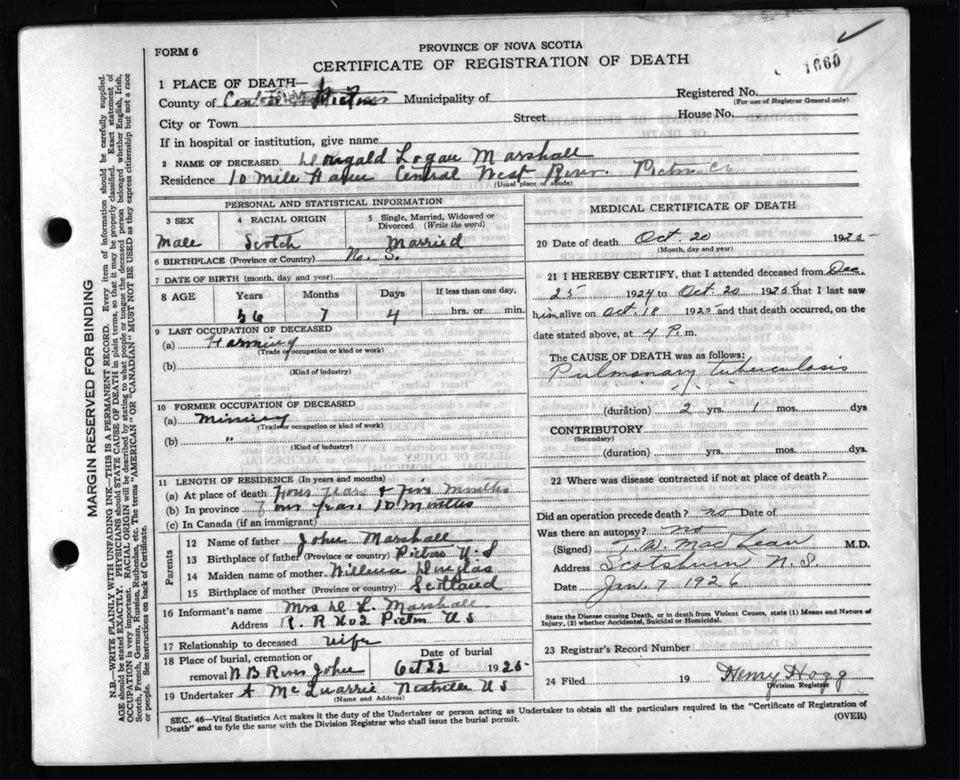 FORM 6
PROVINCE OF NOVA SCOTIA
CERTIFICATE OF REGISTRATION OF DEATH
1660
1 PLACE OF DEATH—
County of Pictou Municipality of
Registered No.
(For use of Registrar General only)
City or Town Street House No.
If in hospital or institution, give name
2 NAME OF DECEASED Dougald Logan Marshall
Residence 10 Mile House Central West River. Pictou Co
(Usual place of abode)
PERSONAL AND STATISTICAL INFORMATION
3 SEX
Male
4 RACIAL ORIGIN
Scotch
5 Single, Married, Widowed or Divorced (Write the word)
Married
6 BIRTHPLACE (Province or Country) N. S.
7 DATE OF BIRTH (month, day and year)
8 AGE Years Months Days If less than one day,
56 7 4 hrs. or min.
9 LAST OCCUPATION OF DECEASED
(a) Farming
(Trade or occupation or kind or work)
(b)
(Kind of industry)
10 FORMER OCCUPATION OF DECEASED
(a) Mining
(Trade or occupation or kind or work)
(b) "
(Kind of industry)
11 LENGTH OF RESIDENCE (In years and months)
(a) At place of death Four years & Five Months
(b) In province Four Years. 10 Months
(c) In Canada (if an immigrant)
Parents
12 Name of father John Marshall
13 Birthplace of father (Province or country) Pictou N S
14 Maiden name of mother Willena Douglas
15 Birthplace of mother (Province or country) Scotland
16 Informant's name Mrs D. L. Marshall
Address R. R No 2 Pictou N S
17 Relationship to deceased wife
18 Place of burial, cremation or removal Date of burial
River John Oct 22 1925
19 Undertaker A McQuarrie Westville N S
(Name and Address)
MEDICAL CERTIFICATE OF DEATH
20 Date of death Oct 20 1925
(Month, day and year)
21 I HEREBY CERTIFY, that I attended deceased from Dec.
25 1924 to Oct. 20 1925 that I last saw
him alive on Oct. 18 1925 and that death occurred, on the
date stated above, at 4 P.m.
The CAUSE OF DEATH was as follows:
Pulmonary tuberculosis
(duration) 2 yrs. 1 mos. dys
CONTRIBUTORY
(Secondary)
(duration) yrs. mos. dys.
22 Where was disease contracted if not at place of death?
Did an operation precede death? no Date of
Was there an autopsy? no
(Signed) T. W. MacLean M.D.
Address Scotsburn N.S.
Date Jan. 7 1926
State the Disease causing Death, or in death from Violent Causes, state (1) Means and Nature of Injury, (2) whether Accidental, Suicidal or Homicidal.
23 Registrar's Record Number
24 Filed 19 Henry Hogg
Division Registrar
SEC. 46—Vital Statistics Act makes it the duty of the Undertaker or person acting as Undertaker to obtain all the particulars required in the "Certificate of Registration of
Death" and to fyle the same with the Division Registrar who shall issue the burial permit.
(OVER)
MARGIN RESERVED FOR BINDING
N.B.—WRITE PLAINLY WITH UNFADING INK—THIS IS A PERMANENT RECORD. Every item of information should be carefully supplied.
AGE should be stated EXACTLY. PHYSICIANS should STATE CAUSE OF DEATH in plain terms, so that it may be properly classified. Exact statement of
OCCUPATION is very important. RACIAL ORIGIN will be described by stating to what people or tongue the deceased person belonged whether English, Irish,
Scotch, French, German, Russian, Ruthenian, etc. The terms "AMERICAN" OR "CANADIAN" MUST NOT BE USED as they express citizenship but not a race
or people. See instructions on back of Certificate.